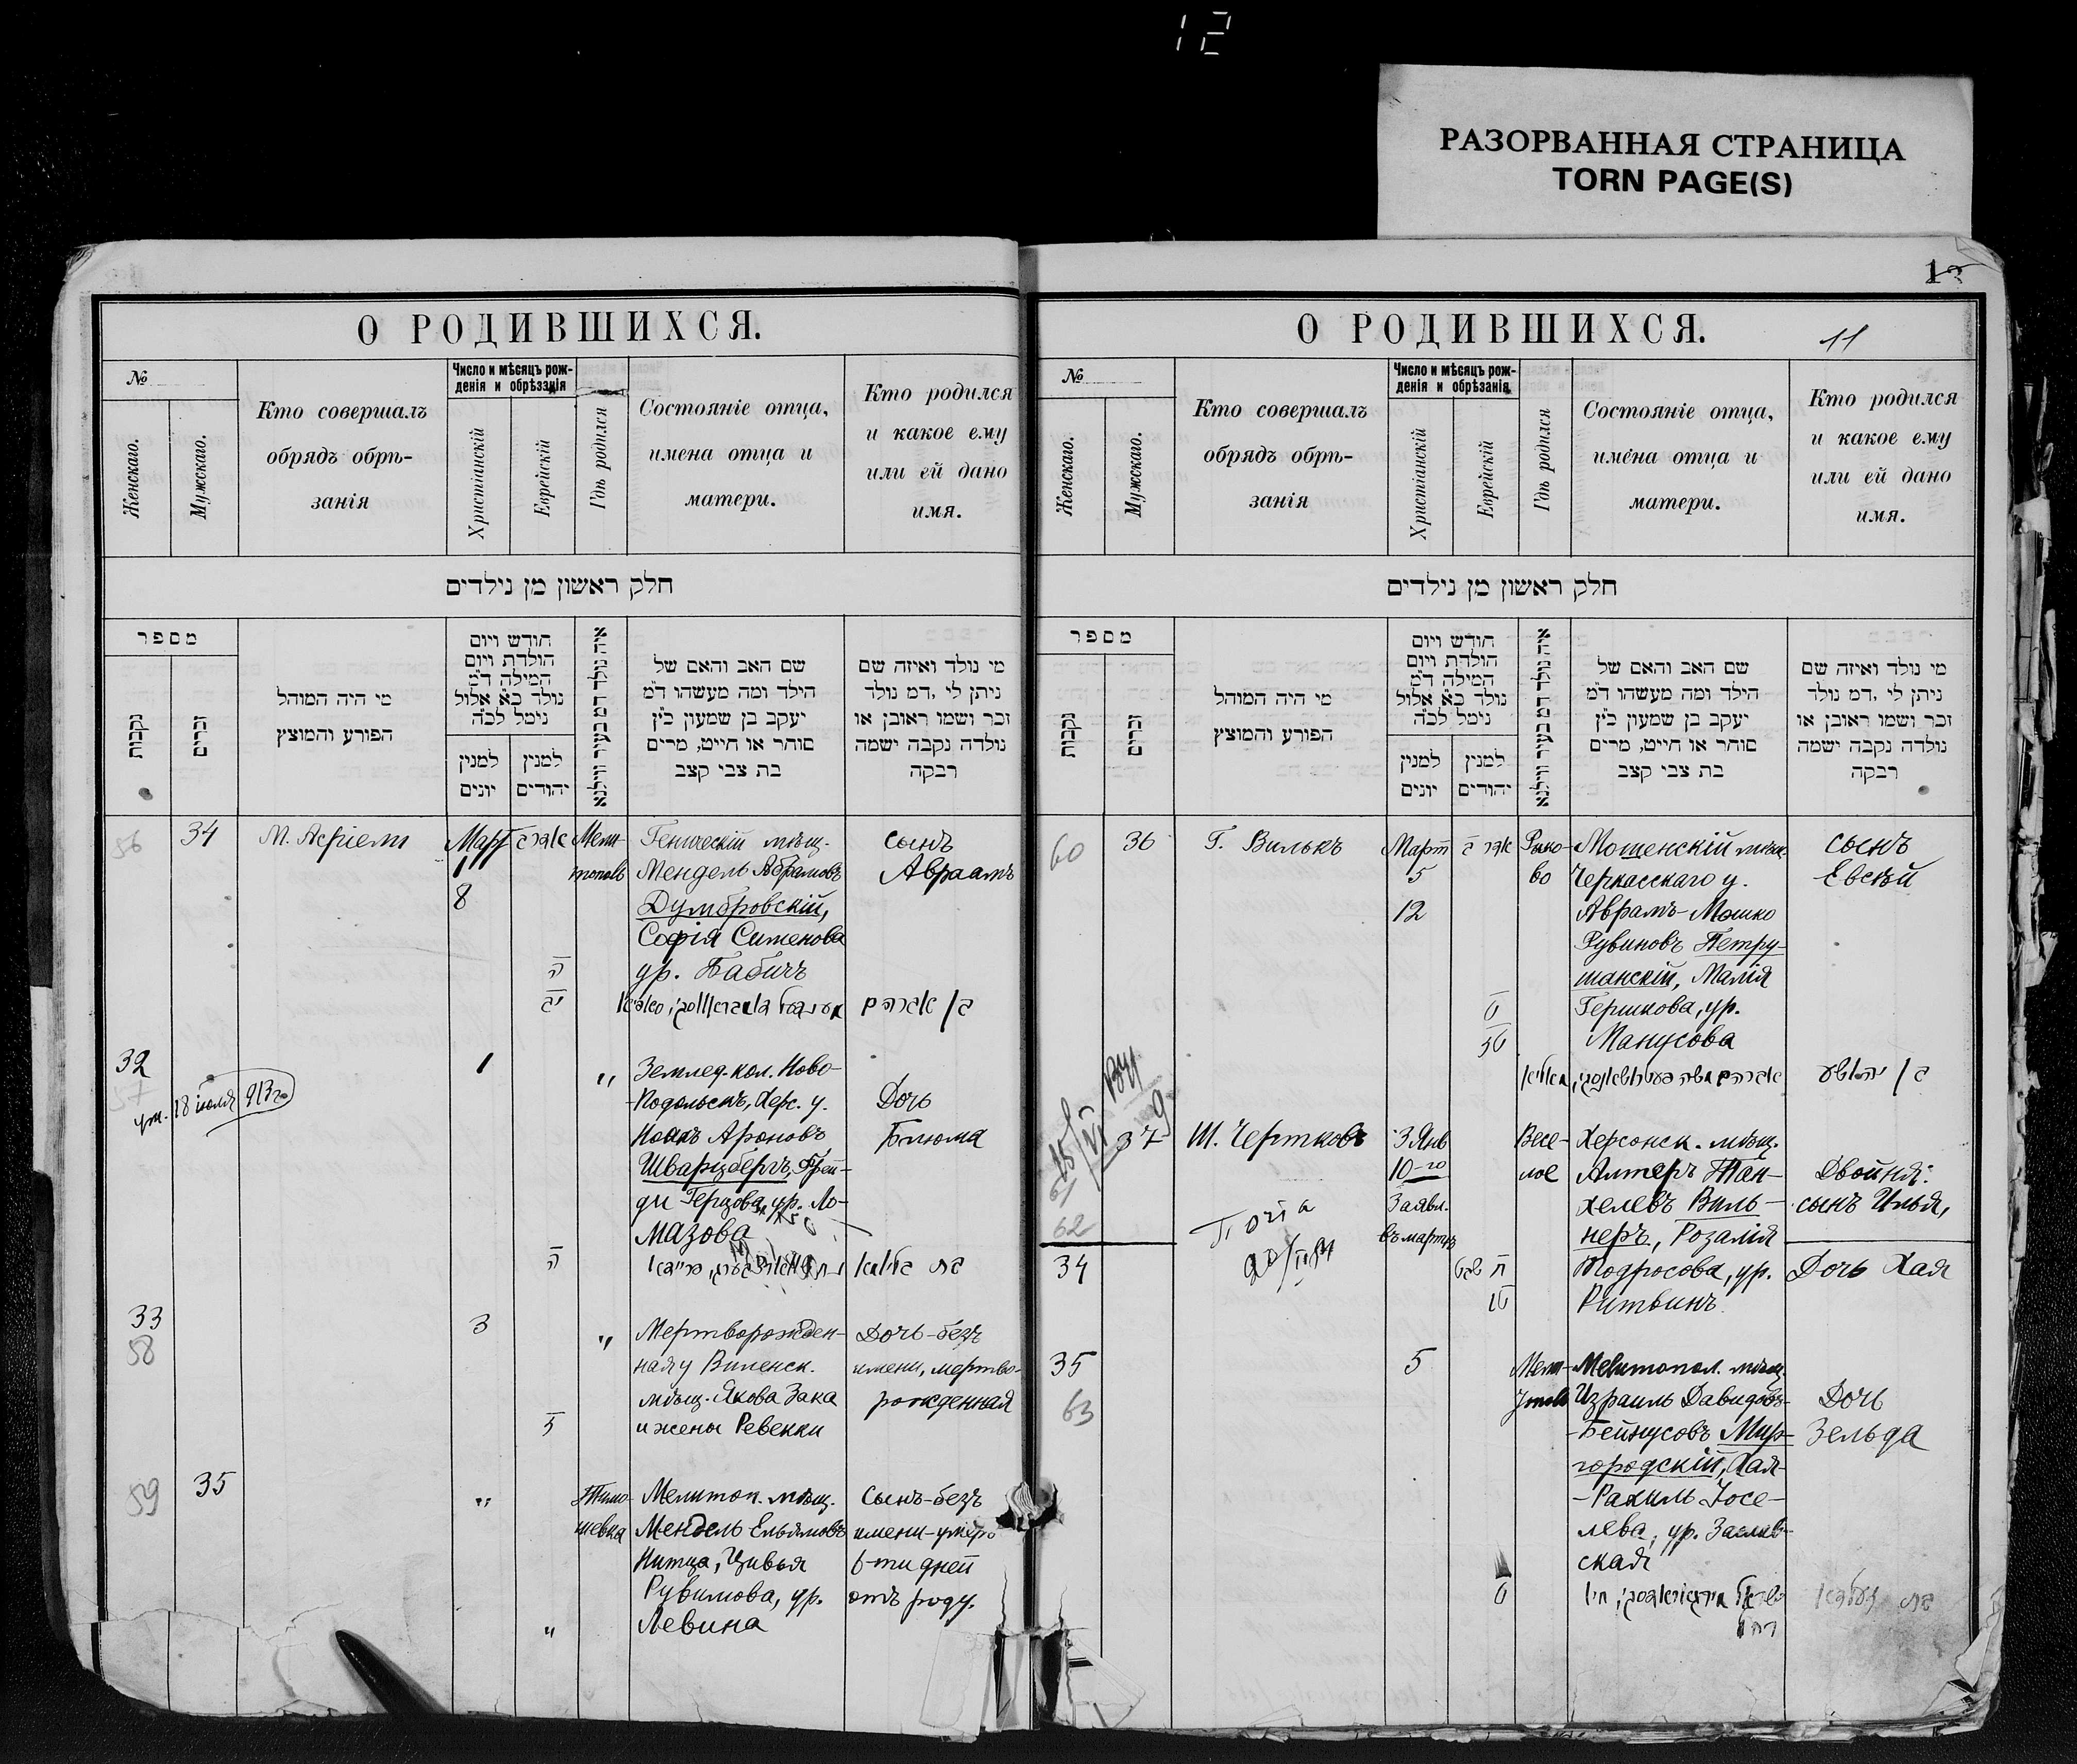 12
РАЗОРВАННАЯ СТРАНИЦА
TORN PAGE(S)
О РОДИВШИХСЯ.
№
Женскаго.
Мужскаго.
Кто совершалъ
обрядъ обрѣ-
занія
Число и мѣсяцъ рож-
денія и обрѣзанія
Христіанскій
Еврейскій
Гдѣ родился
Состояніе отца,
имена отца и
матери.
Кто родился
и какое ему
или ей дано
имя.
חלק ראשון מן נילדים
מספר
נקבות
זכרים
מי היה המוהל
הפורע והמוצץ
חודש ויום
הולדת ויום
המילה ד״מ
נולד כ״א אלול
נימל לכ״ה
למנין
יונים
למנין
יהודים
איה נולד דמ בעיר ווילנא
שם האב והאם של
הילד ומה מעשהו ד״מ
יעקב בן שמעון כ״ץ
סוחר או חייט, מרים
בת צבי קצב
מי נולד ואיזה שם
ניתן לי, דמ נולד
זכר ושמו ראובן או
נולדה נקבה ישמה
רבקה
56
34
М. Асріелл
Март
1
8
אדר ב
ה
יב
Мели-
тополь
Геническій мѣщ.
Мендель Абрамовъ
Думбровскій,
Софія Сименова
ур. Бабичъ
сынъ
Авраамъ
בן אברהם
32
57
ум. 18 іюля 913 го
1
"
ה
Землед. кол. Ново-
-Подольскъ, Херс. у.
Ноахъ Ароновъ
Шварцбергъ, Фрей-
ди Герцова, ур. Ло-
мазова
Дочь
Блюма
בת בלומא
33
58
3
"
Мертворожден-
ная у Виленск.
мѣщ. Якова Зака
и жены Ревекки
Дочь-безъ
имени, мертво-
рожденная
59
35
"
"
Тимо-
шевка
Мелитоп. мѣщ.
Мендель Ельямовъ
Нитца, Цивья
Рувимова, ур.
Левина
Сынъ-безъ
имени-умеръ
6-ти дней
отъ роду.
13
О РОДИВШИХСЯ.
11
№
Женскаго.
Мужскаго.
Кто совершалъ
обрядъ обрѣ-
занія
Число и мѣсяцъ рож-
денія и обрѣзанія
Христіанскій
Еврейскій
Гдѣ родился
Состояніе отца,
имена отца и
матери.
Кто родился
и какое ему
или ей дано
имя.
חלק ראשון מן נילדים
מספר
נקבות
זכרים
מי היה המוהל
הפורע והמוצץ
חודש ויום
הולדת ויום
המילה ד״מ
נולד כ״א אלול
נימל לכ״ה
למנין
יונים
למנין
יהודים
איה נולד דמ בעיר ווילנא
שם האב והאם של
הילד ומה מעשהו ד״מ
יעקב בן שמעון כ״ץ
סוחר או חייט, מרים
בת צבי קצב
מי נולד ואיזה שם
ניתן לי, דמ נולד
זכר ושמו ראובן או
נולדה נקבה ישמה
רבקה
60
36
Г. Вилькъ
Март
5
12
אדר ב
ט
טז
Рыко-
во
Мошенскій мѣщ.
Черкасскаго у.
Аврамъ-Мошко
Рувиновъ Петру-
шанскій, Малія
Гершкова, ур.
Манусова
сынъ
Евсѣй
בן יהושע
61
62
37
Ш. Чертковъ
3 Янв
10-го
Заявл.
въ мартѣ
Весе-
лое
Херсонск. мѣщ.
Алтеръ Тан-
хелевъ Виль-
неръ, Розалія
Тодросова, ур.
Ритвинъ
Двойня:
сынъ Илья,
34
ח שבט
טו
Дочь Хая
35
63
5
ט
Мели-
Мелитопол. мѣщ.
Израиль Давидовъ-
-Бейнусовъ Мир-
городскій, Хая-
-Рахиль Іосе-
лева, ур. Заслав-
ская
Дочь
Зельда
בת זעלדא